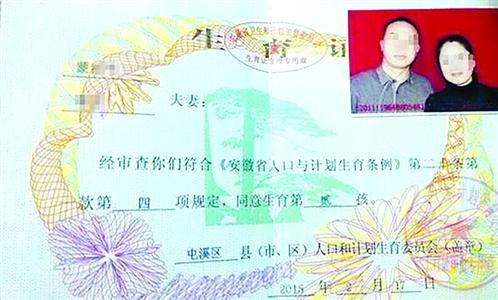 生育证
夫妻:
经审查你们符合《安徽省人口与计划生育条例》第二十条第
款第 四 项规定,同意生育第 贰 孩。
屯溪区 县(市、区)人口和计划生育委员会(盖章)
2015 年 2 月 17 日